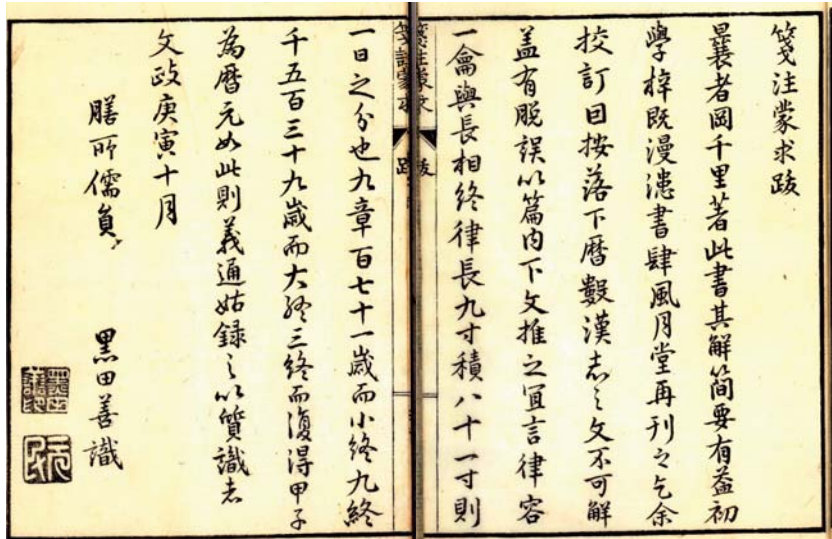 箋注蒙求跋
曩者岡千里著此書其解簡要有益初
學梓既漫漶書肆風月堂再刊之乞余
挍訂因按落下曆數漢志之文不可解
盖有脫誤以篇内下文推之宜言律容
一龠與長相終律長九寸積八十一寸則
一日之分也九章百七十一歲而小終九終
千五百三十九歲而大終三終而復得甲子
為曆元如此則義通姑録之以質識者
文政庚寅十月
膳所儒員 黒田善識
箋註蒙求
跋